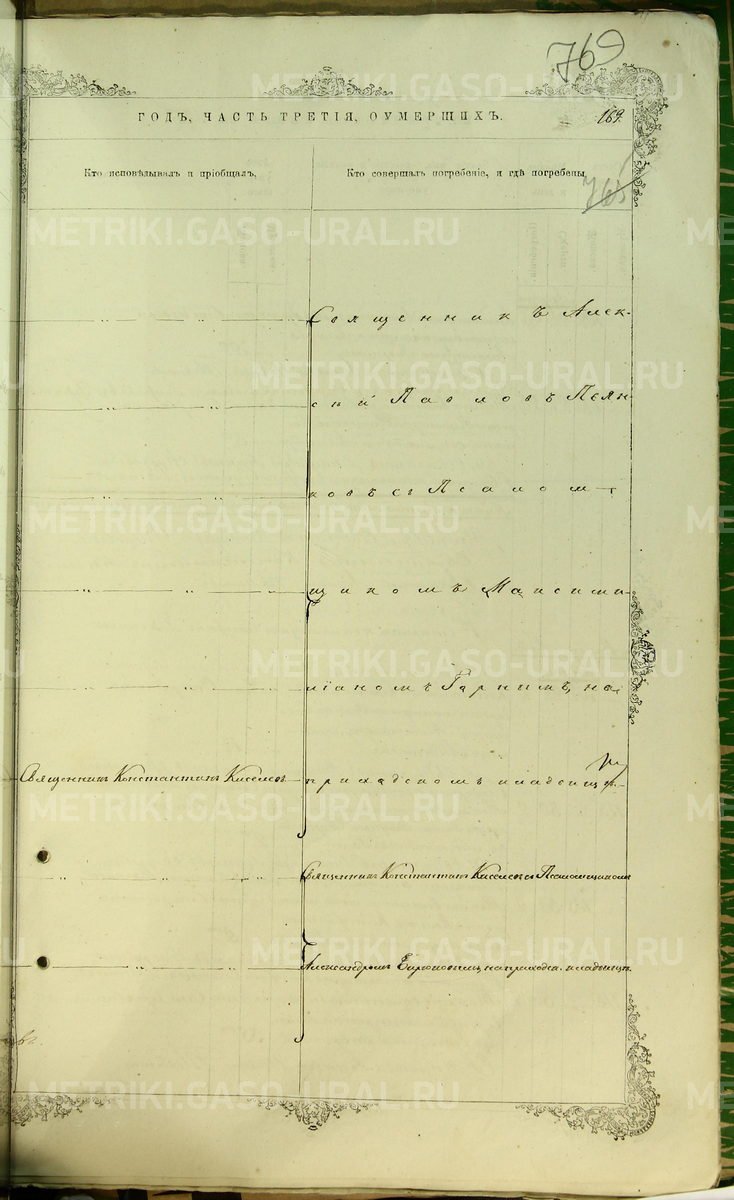 769
ГОДЪ, ЧАСТЬ ТРЕТІЯ, О УМЕРШИХЪ.
169.
Кто исповѣдывалъ и пріобщалъ,
Кто совершалъ погребеніе, и гдѣ погребены,
765
Священникъ Алек-
сѣй Павловъ Пьян
ковъ съ Псалом-
щикомъ Максими-
ліаномъ Горнымъ, на
Священникъ Константинъ Киселев
приходскомъ кладбищѣ
Священникъ Константинъ Киселев и Псаломщикомъ
Александромъ на приходск. кладбищѣ
METRIKI.GASO-URAL.RU